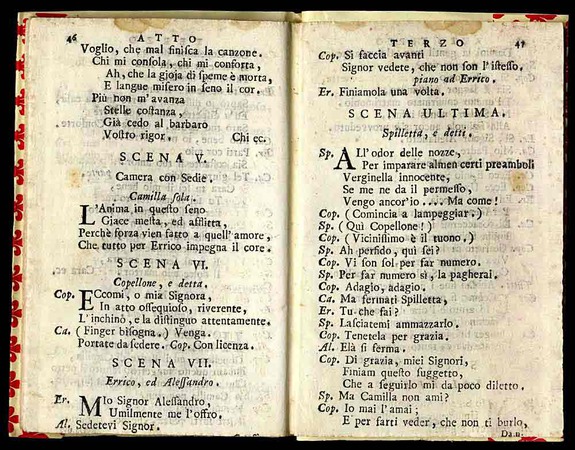 46 ATTO
Voglio, che mal finisca la canzone.
Chi mi consola, chi mi conforta,
Ah, che la gioja di speme è morta,
E langue misero in seno il cor.
Più non m'avanza
Stelle costanza,
Già cedo al barbaro
Vostro rigor. Chi ec.
SCENA V.
Camera con Sedie.
Camilla sola.
L'Anima in questo seno
Giace mesta, ed afflitta,
Perchè forza vien fatto a quell'amore,
Che tutto per Errico impegna il core.
SCENA VI.
Copellone, e detta.
Cop. Eccomi, o mia Signora,
In atto ossequioso, riverente,
L'inchino, e la distinguo attentamente.
Ca. (Finger bisogna.) Venga.
Portate da sedere. Cop. Con licenza.
SCENA VII.
Errico, ed Alessandro.
Er. Mio Signor Alessandro,
Umilmente me l'offro.
Al. Sedetevi Signor.
TERZO 47
Cop. Si faccia avanti
Signor vedete, che non son l'istesso.
piano ad Errico.
Er. Finiamola una volta.
SCENA ULTIMA.
Spilletta, e detti.
Sp. All'odor delle nozze,
Per imparare almen certi preamboli
Verginella innocente,
Se me ne da il permesso,
Vengo ancor'io .... Ma come!
Cop. (Comincia a lampeggiar.)
Sp. (Quì Copellone!)
Cop. (Vicinissimo è il tuono.)
Sp. Ah perfido, quì sei?
Cop. Vi son sol per far numero.
Sp. Per far numero sì, la pagherai.
Cop. Adagio, adagio.
Ca. Ma fermati Spilletta,
Er. Tu che fai?
Sp. Lasciatemi ammazzarlo.
Cop. Tenetela per grazia.
Al. Elà si ferma.
Cop. Di grazia, miei Signori,
Finiam questo suggetto,
Che a seguirlo mi da poco diletto.
Sp. Ma Camilla non ami?
Cop. Io mai l'amai;
E per farti veder, che non ti burlo,